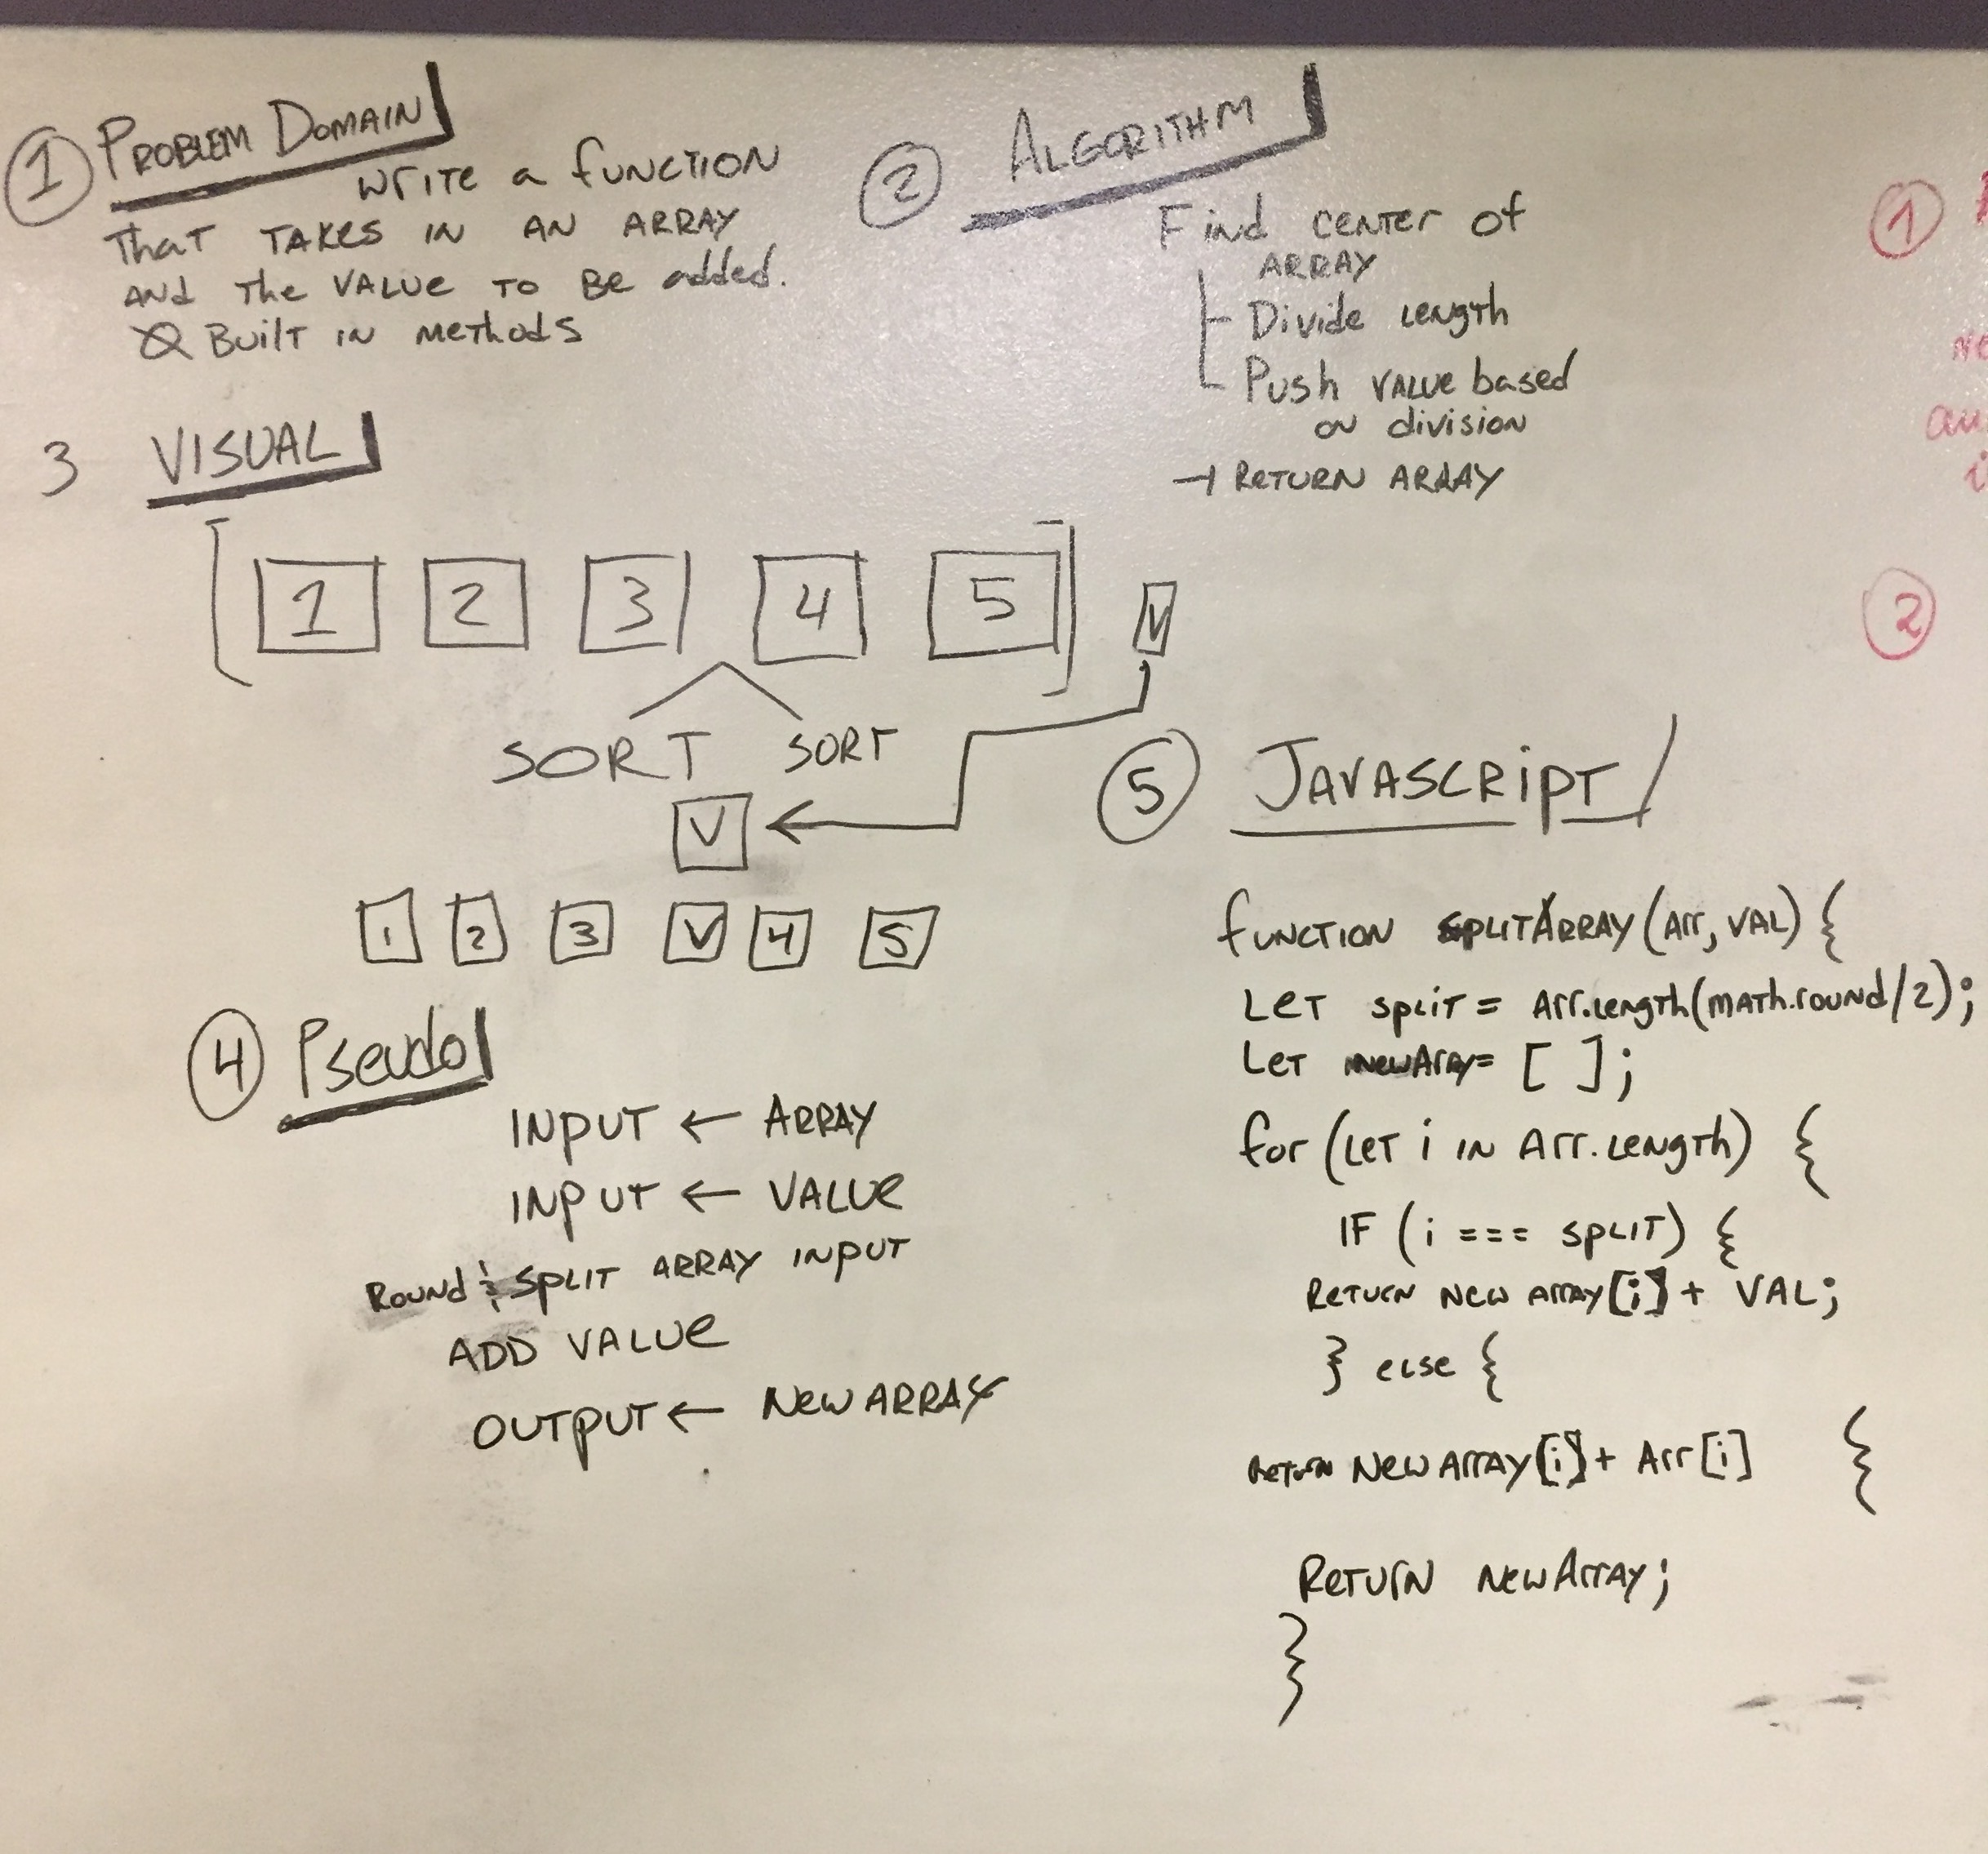 1 PROBLEM DOMAIN
WRITE a FUNCTION
THAT TAKES IN AN ARRAY
AND THE VALUE TO BE added.
Ø BUILT IN METHODS
2 ALGORITHM
Find CENTER of
ARRAY
Divide LENGTH
Push VALUE based
ON division
→ RETURN ARRAY
3 VISUAL
[ 1 2 3 4 5 ] V
SORT SORT
V
1 2 3 V 4 5
4 Pseudo
INPUT ← ARRAY
INPUT ← VALUE
ROUND & SPLIT ARRAY INPUT
ADD VALUE
OUTPUT ← NEW ARRAY
5 JAVASCRIPT
FUNCTION SPLITARRAY(Arr, VAL) {
LET split = Arr.Length(MATH.round/2);
LET newArray= [ ];
for (LET i IN Arr.LENGTH) {
IF (i === SPLIT) {
RETURN NEW ARRAY[i] + VAL;
} eLse {
RETURN NEW ARRAY[i] + Arr[i] {
RETURN NEWARRAY;
}
1
2